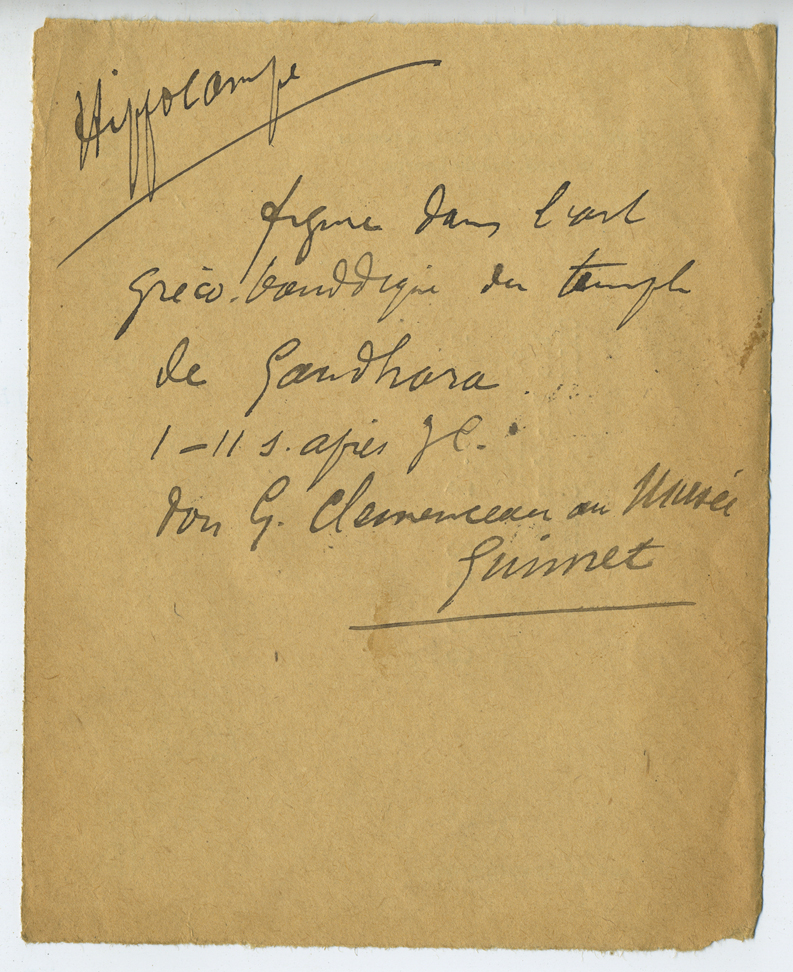 Hippocampe
figure dans l'art
gréco-bouddique du temple
de Gandhara.
1-11 s. après JC.
don G. Clemenceau au Musée
Guimet